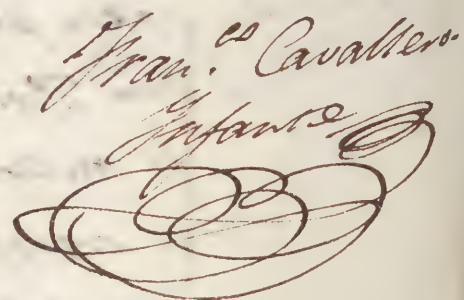 Fran.es Cavallero
Ynfante